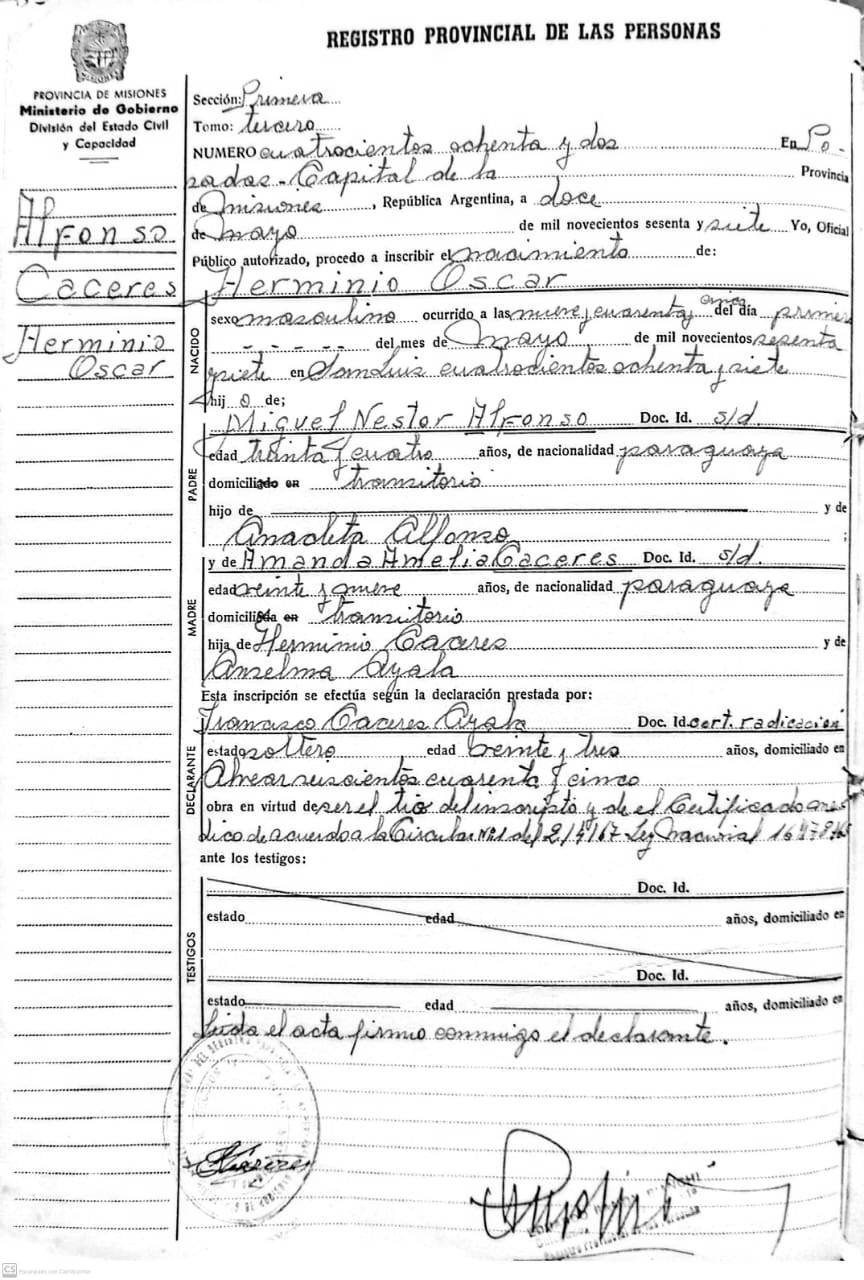 REGISTRO PROVINCIAL DE LAS PERSONAS
PROVINCIA DE MISIONES
Ministerio de Gobierno
División del Estado Civil
y Capacidad
Alfonso
Caceres
Herminio
Oscar
Sección: Primera
Tomo: tercero
NUMERO cuatrocientos ochenta y dos En Po-
sadas - Capital de la Provincia
de Misiones, República Argentina, a doce
de mayo de mil novecientos sesenta y siete Yo, Oficial
Público autorizado, procedo a inscribir el nacimiento de:
Herminio Oscar
NACIDO
sexo masculino ocurrido a las nueve y cuarenta y cinco del día primero
- - - - - del mes de Mayo de mil novecientos sesenta
y siete en San Luis cuatrocientos ochenta y siete
hij o de;
PADRE
Miguel Nestor Alfonso Doc. Id. s/d.
edad treinta y cuatro años, de nacionalidad paraguaya
domiciliado en transitorio
hijo de y de
Anacleta Alfonso ;
MADRE
y de Amanda Amelia Caceres Doc. Id. s/d.
edad veinte y nueve años, de nacionalidad paraguaya
domiciliada en transitorio
hija de Herminio Caceres y de
Anselma Ayala
Esta inscripción se efectúa según la declaración prestada por:
DECLARANTE
Francisco Caceres Ayala Doc. Id. cert. radicación
estado soltero edad veinte y tres años, domiciliado en
Alvear seiscientos cuarenta y cinco
obra en virtud de ser el tio del inscripto y de el Certificado mé
dico de acuerdo a la Circular Nº1 del 2/4/67 Ley Nacional
ante los testigos:
TESTIGOS
Doc. Id.
estado edad años, domiciliado en
Doc. Id.
estado edad años, domiciliado en
Leida el acta firma conmigo el declarante.
CS Escaneado con CamScanner